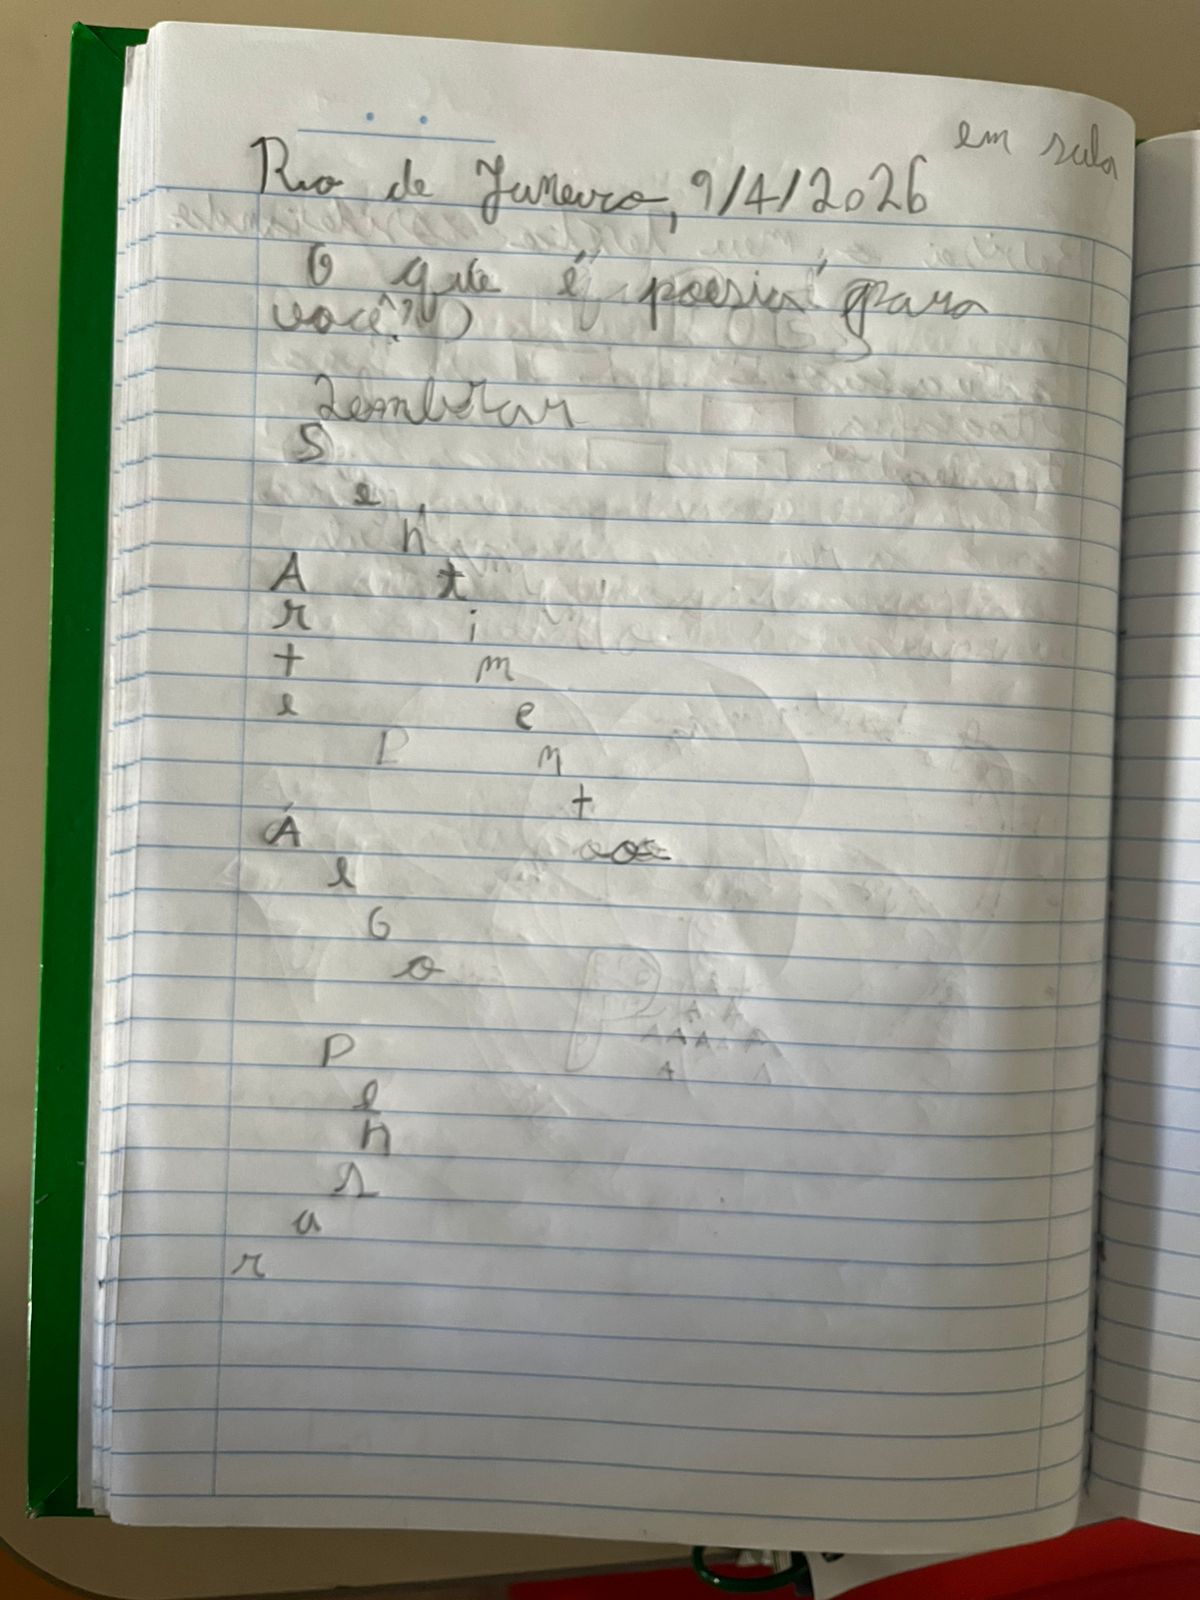 em sala
Rio de Janeiro, 9/4/2026
O que é poesia para
você?
Lembrar
S
e
n
A t
r i
t m
e e
P n
t
Á o
l
G
o
P
e
n
s
a
r